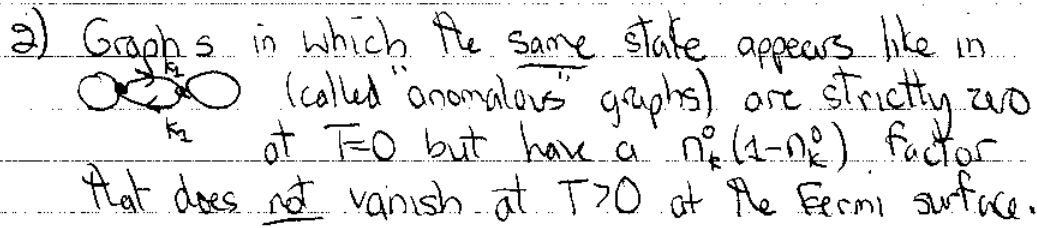 2) Graphs in which the same state appears like in
k₁
(called "anomalous" graphs) are strictly zero
k₂
at T=0 but have a n°ₖ(1-n°ₖ) factor
that does not vanish at T>0 at the Fermi surface.